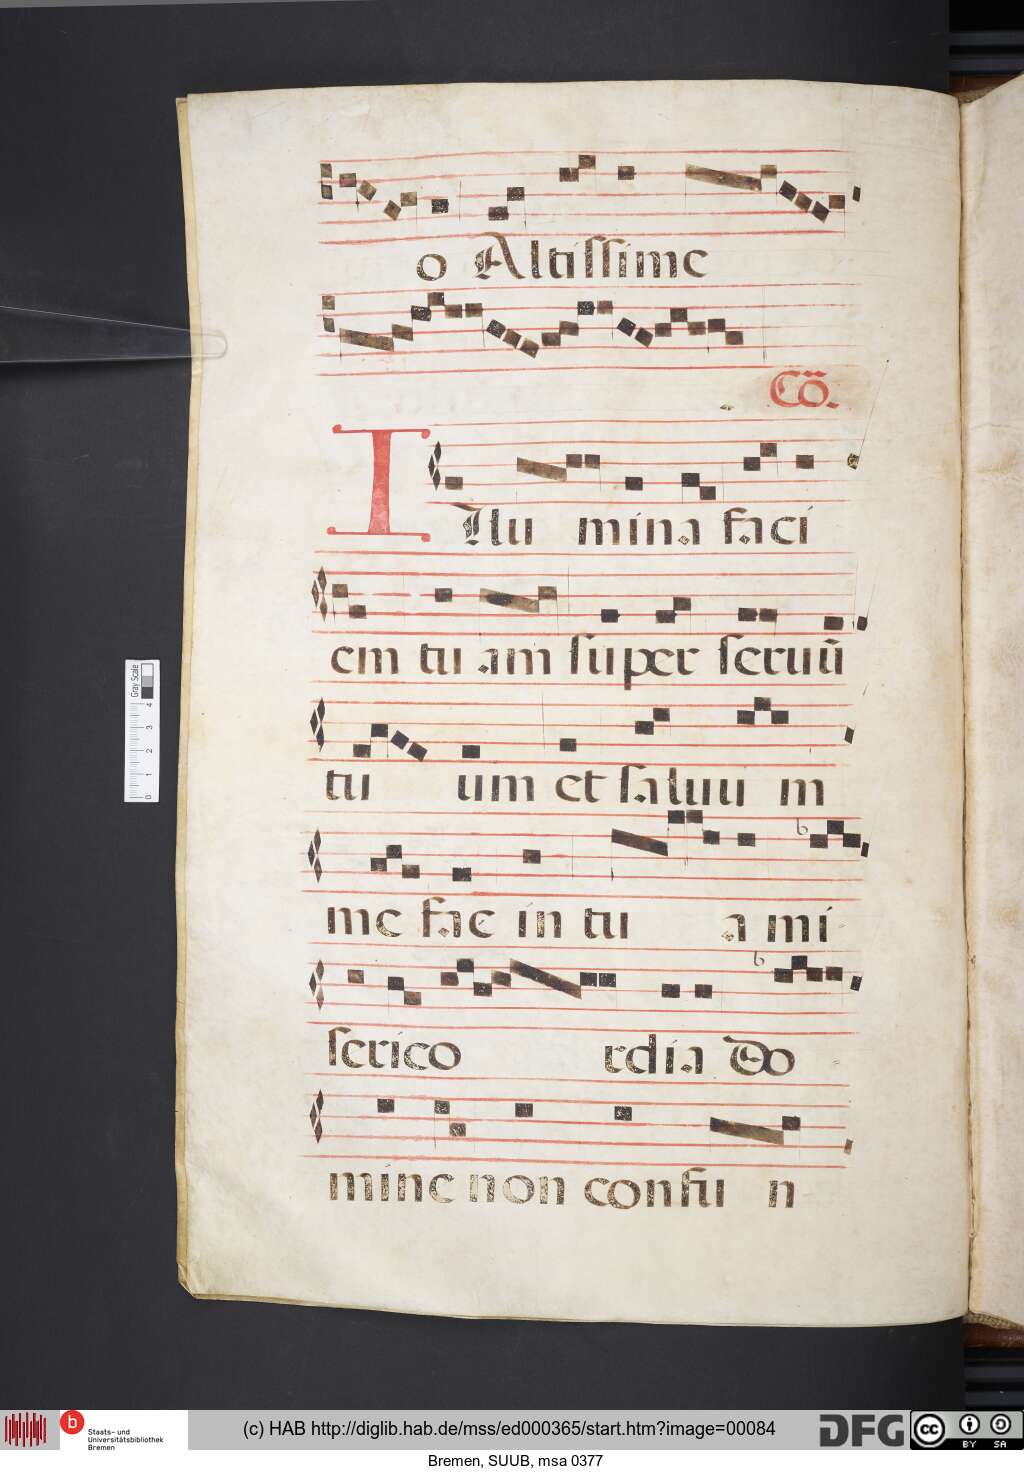 o Altissime
Cō.
Illu mina faci
em tu am super seruū
tu um et saluu m
me fac in tu a mi
serico rdia Do
mine non confu n
Gray Scale
0 1 2 3 4
b Staats- und
Universitätsbibliothek
Bremen
(c) HAB http://diglib.hab.de/mss/ed000365/start.htm?image=00084
DFG
cc BY SA
Bremen, SUUB, msa 0377